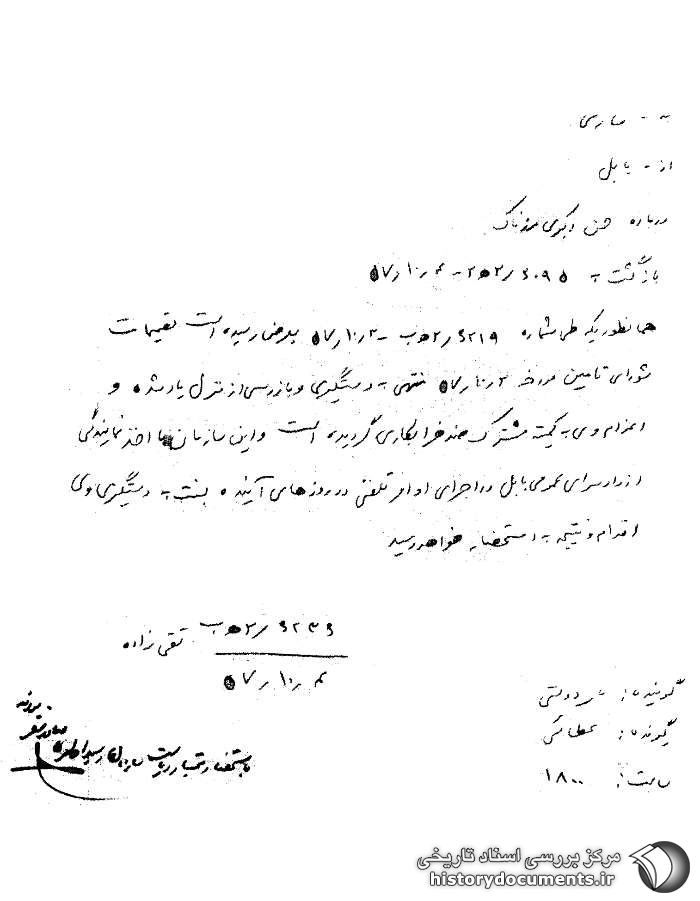 به - ساری
از - بابل
درباره حسن اکبری مرزناک
بازگشت به ۲/۶۰۹۵ ه‍ ۲ - ۴ر۱۰ر۵۷
همانطوریکه طی شماره ۲/۶۲۱۹ ه‍ ب - ۳ر۱۰ر۵۷ بعرض رسیده است تصمیمات
شورای تامین مورخه ۳ر۱۰ر۵۷ منتهی به دستگیری و بازرسی از منزل یاد شده و
اعزام وی به کمیته مشترک ضد خرابکاری گردیده است و این سازمان با اخذ نمایندگی
از دادسرای عمومی بابل در اجرای اوامر تلفنی در روزهای آینده نسبت به دستگیری وی
اقدام و نتیجه به استحضار خواهد رسید
۲/۶۲۳۶ ه‍ ب تقی زاده
۴ر۱۰ر۵۷
گوینده:
گیرنده: عطائی
ساعت: ۱۸۰۰
مرکز بررسی اسناد تاریخی
historydocuments.ir